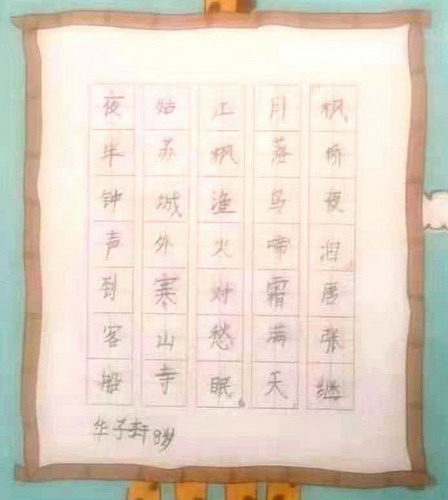 枫桥夜泊唐张继
月落乌啼霜满天
江枫渔火对愁眠
姑苏城外寒山寺
夜半钟声到客船
华子轩 8岁